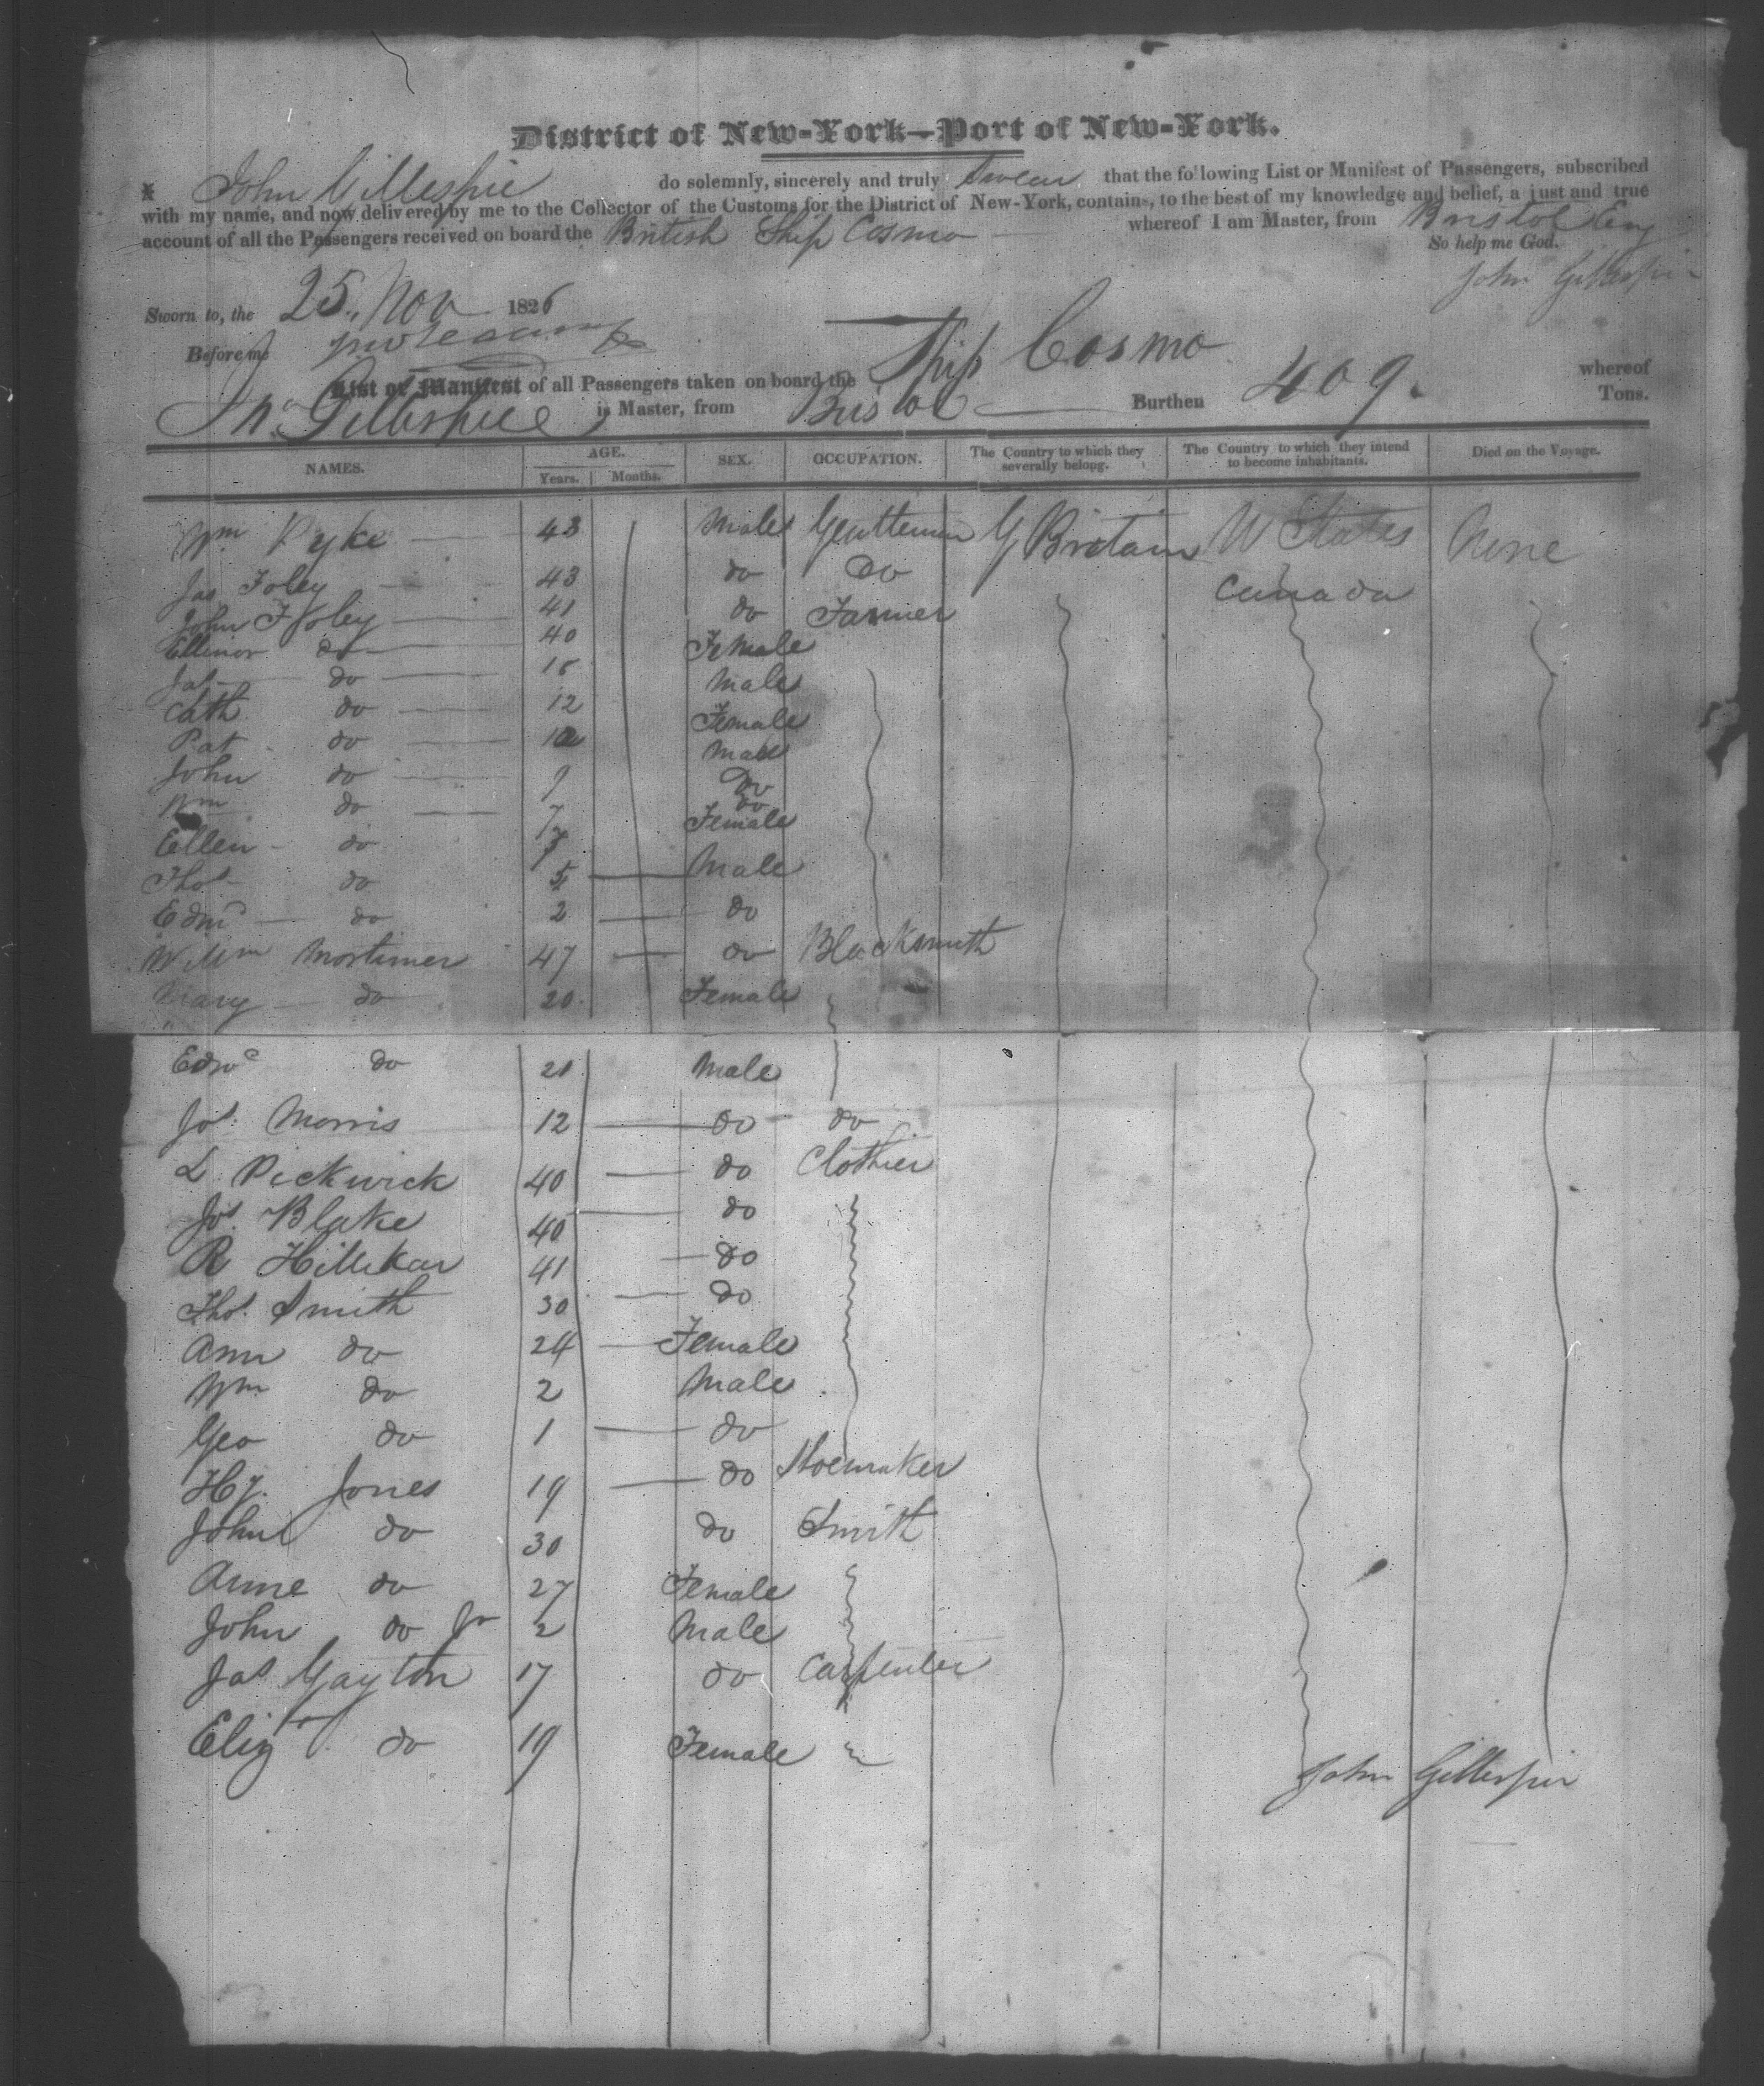 District of New-York—Port of New-York.
I John Gillespie do solemnly, sincerely and truly Swear that the following List or Manifest of Passengers, subscribed
with my name, and now delivered by me to the Collector of the Customs for the District of New-York, contains, to the best of my knowledge and belief, a just and true
account of all the Passengers received on board the British Ship Cosmo whereof I am Master, from Bristol Eng
So help me God.
John Gillespie
Sworn to, the 25 Nov 1826
Before me
List or Manifest of all Passengers taken on board the Ship Cosmo whereof
Jno Gillespie is Master, from Bristol Burthen 409. Tons.
NAMES. AGE. Years. Months. SEX. OCCUPATION. The Country to which they severally belong. The Country to which they intend to become inhabitants. Died on the Voyage.
Wm Pyke 43 Male Gentleman G Britain U States None
Jas Foley 43 do do Canada
John Foley 41 do Farmer
Ellinor do 40 Female
Jas do Male
Cath do 12 Female
Pat do Male
John do 9 do
Wm do 7 do
Ellen do Female
Thos do 5 Male
Edmd do 2 do
Wm Mortimer 47 do Blacksmith
Mary do 20 Female
Edwd do 21 Male
Jos. Morris 12 do do
L Pickwick 40 do Clothier
Jos. Blake 40 do
R Hillikar 41 do
Thos. Smith 30 do
Ann do 24 Female
Wm do 2 Male
Geo do 1 do
Hy. Jones 19 do Shoemaker
John do 30 do Smith
Anne do 27 Female
John do Jr 2 Male
Jas Gayton 17 do Carpenter
Eliz do 19 Female
John Gillespie